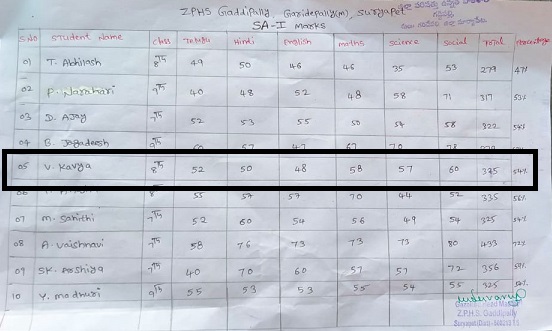 ZPHS Gaddipally, Garidepally(m), Suryapet
SA-I Marks
S.No Student Name Class Telugu Hindi English maths Science Social Total Percentage
01 T. Abhilash 8th 49 50 46 46 35 53 279 47%
02 P. Narahari 9th 40 48 52 48 58 71 317 53%
03 D. Ajay 7th 52 53 55 50 54 58 322 54%
04 B. Jagadeesh 9th 57 47 67 70 78
05 V. Kavya 8th 52 50 48 58 57 60 325 54%
55 57 57 70 44 52 335 56%
07 M. Sahithi 7th 52 60 54 56 49 54 325 54%
08 A. Vaishnavi 7th 58 76 73 73 73 80 433 72%
09 SK. Arshiya 7th 40 70 60 57 57 72 356 59%
10 Y. Madhuri 9th 55 53 53 55 54 55 325 54%
Gazetted Head Master
Z.P.H.S. Gaddipally